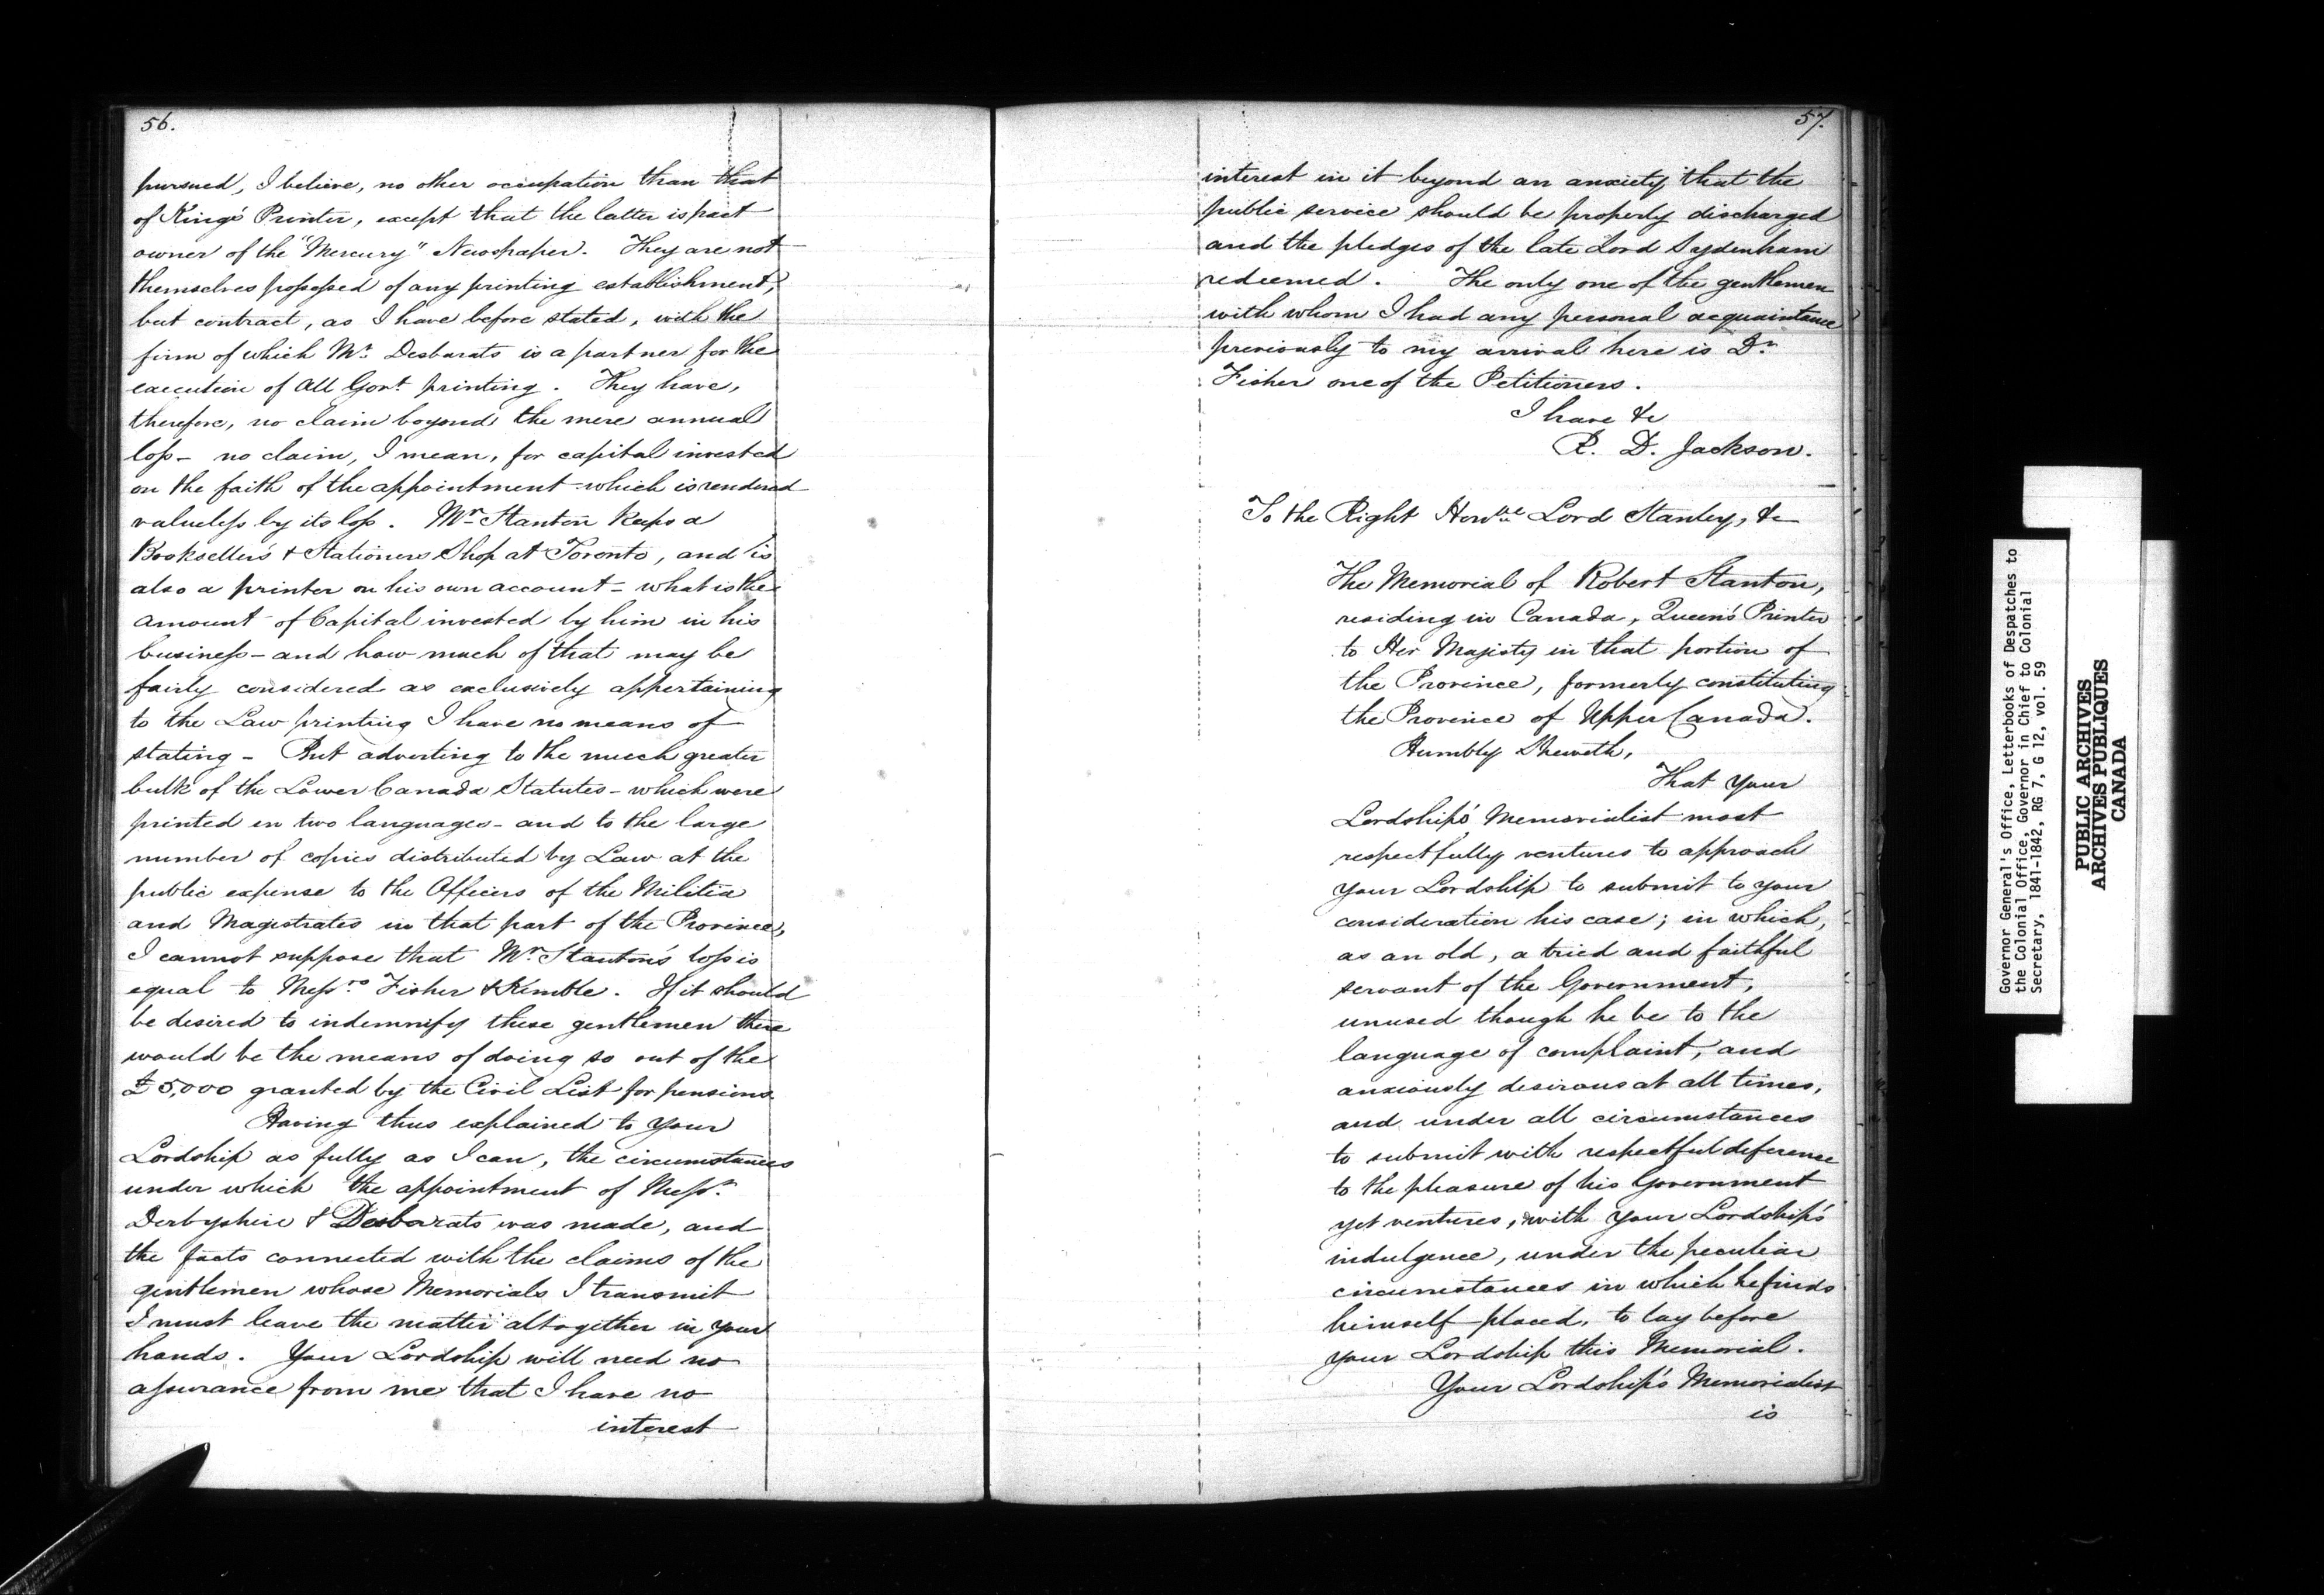 56.
pursued, I believe, no other occupation than that
of King's Printer, except that the latter is part
owner of the "Mercury" Newspaper. They are not
themselves possessed of any printing establishment,
but contract, as I have before stated, with the
firm of which Mr. Desbarats is a partner for the
execution of all Govt. printing. They have,
therefore, no claim beyond the mere annual
loss - no claim, I mean, for capital invested
on the faith of the appointment which is rendered
valueless by its loss. Mr. Stanton keeps a
Bookseller's & Stationers Shop at Toronto, and is
also a printer on his own account - what is the
amount of Capital invested by him in his
business - and how much of that may be
fairly considered as exclusively appertaining
to the Law printing I have no means of
stating - But adverting to the much greater
bulk of the Lower Canada Statutes - which were
printed in two languages - and to the large
number of copies distributed by Law at the
public expense to the Officers of the Militia
and Magistrates in that part of the Province,
I cannot suppose that Mr. Stanton's loss is
equal to Messrs. Fisher & Kimble. If it should
be desired to indemnify these gentlemen there
would be the means of doing so out of the
£5,000 granted by the Civil List for pensions.
Having thus explained to Your
Lordship as fully as I can, the circumstances
under which the appointment of Messrs.
Derbyshire & Desbarats was made, and
the facts connected with the claims of the
gentlemen whose Memorials I transmit
I must leave the matter altogether in your
hands. Your Lordship will need no
assurance from me that I have no
interest
57.
interest in it beyond an anxiety that the
public service should be properly discharged
and the pledges of the late Lord Sydenham
redeemed. The only one of the gentlemen
with whom I had any personal acquaintance
previously to my arrival here is Dr.
Fisher one of the Petitioners.
I have &c
R. D. Jackson.
To the Right Honble Lord Stanley, &c
The Memorial of Robert Stanton,
residing in Canada, Queen's Printer
to Her Majesty in that portion of
the Province, formerly constituting
the Province of Upper Canada.
Humbly Sheweth,
That Your
Lordship's Memorialist most
respectfully ventures to approach
your Lordship to submit to your
consideration his case; in which,
as an old, a tried and faithful
servant of the Government,
unused though he be to the
language of complaint, and
anxiously desirous at all times,
and under all circumstances
to submit with respectful deference
to the pleasure of his Government
yet ventures, with your Lordship's
indulgence, under the peculiar
circumstances in which he finds
himself placed, to lay before
your Lordship this Memorial.
Your Lordship's Memorialist
is
Governor General's Office, Letterbooks of Despatches to
the Colonial Office, Governor in Chief to Colonial
Secretary, 1841-1842, RG 7, G 12, vol. 59
PUBLIC ARCHIVES
ARCHIVES PUBLIQUES
CANADA